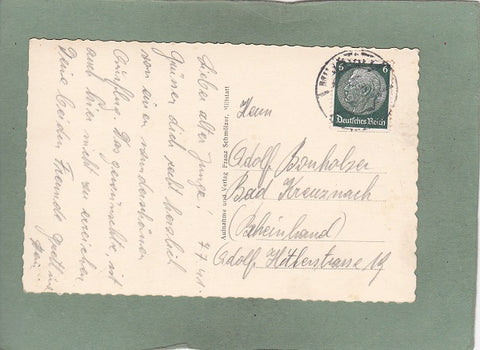 7.7.41.
Lieber alter Junge!
Grüner dich recht herzlich
von einer wunderschönen
Ausflug. Das gewünschte, ist
auch hier nicht zu erreichen
Deine beiden Freunde
Aufnahme und Verlag Franz Schmölzer, Millstatt
6 6
Deutsches Reich
Herrn
Adolf Bonholzer
Bad Kreuznach
(Rheinland)
Adolf. Hitlerstrasse 19